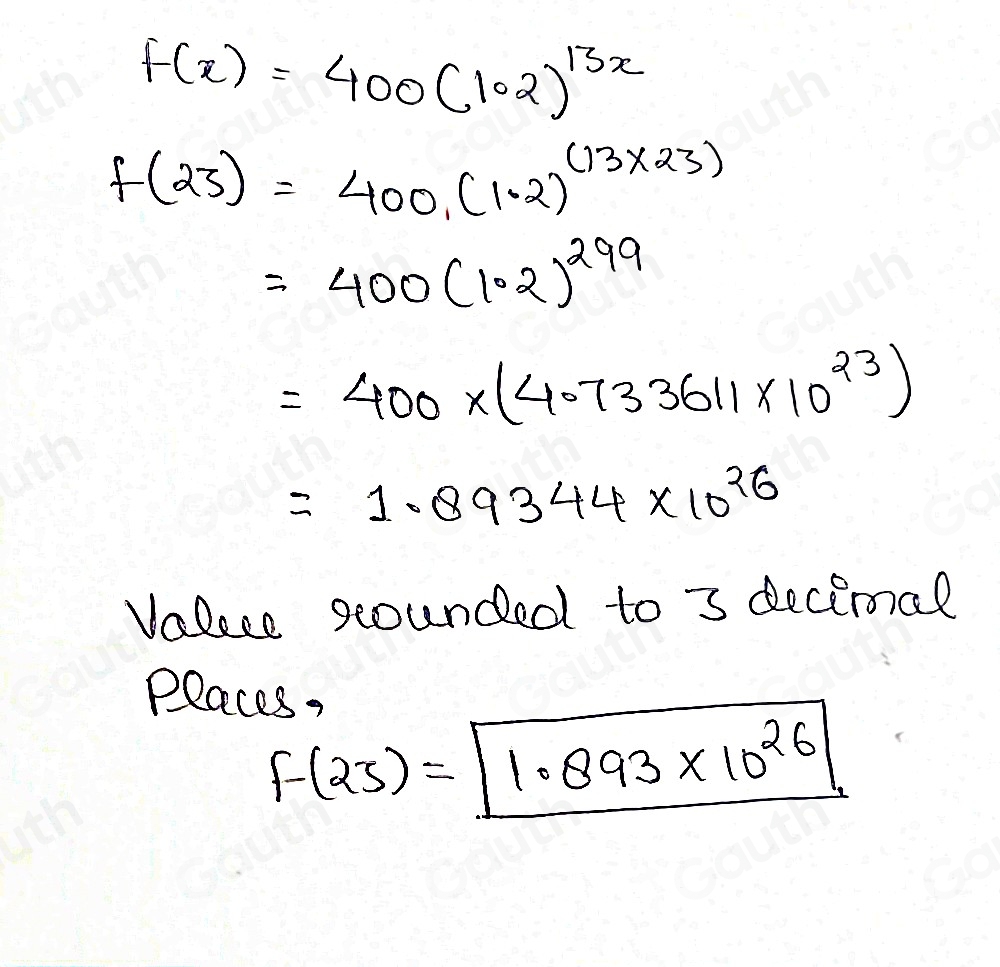 f(x) = 400(1.2)^13x
f(23) = 400.(1.2)^(13×23)
= 400(1.2)^299
= 400 ×(4.733611×10^23)
= 1.89344×10^26
Value rounded to 3 decimal
Places,
f(23) = 1.893×10^26